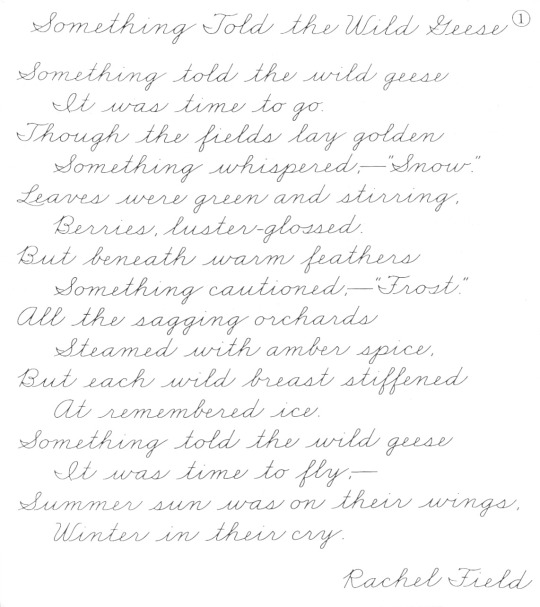 Something Told the Wild Geese ①
Something told the wild geese
It was time to go.
Though the fields lay golden
Something whispered,—"Snow."
Leaves were green and stirring,
Berries, luster-glossed.
But beneath warm feathers
Something cautioned,—"Frost."
All the sagging orchards
Steamed with amber spice,
But each wild breast stiffened
At remembered ice.
Something told the wild geese
It was time to fly,—
Summer sun was on their wings,
Winter in their cry.
Rachel Field